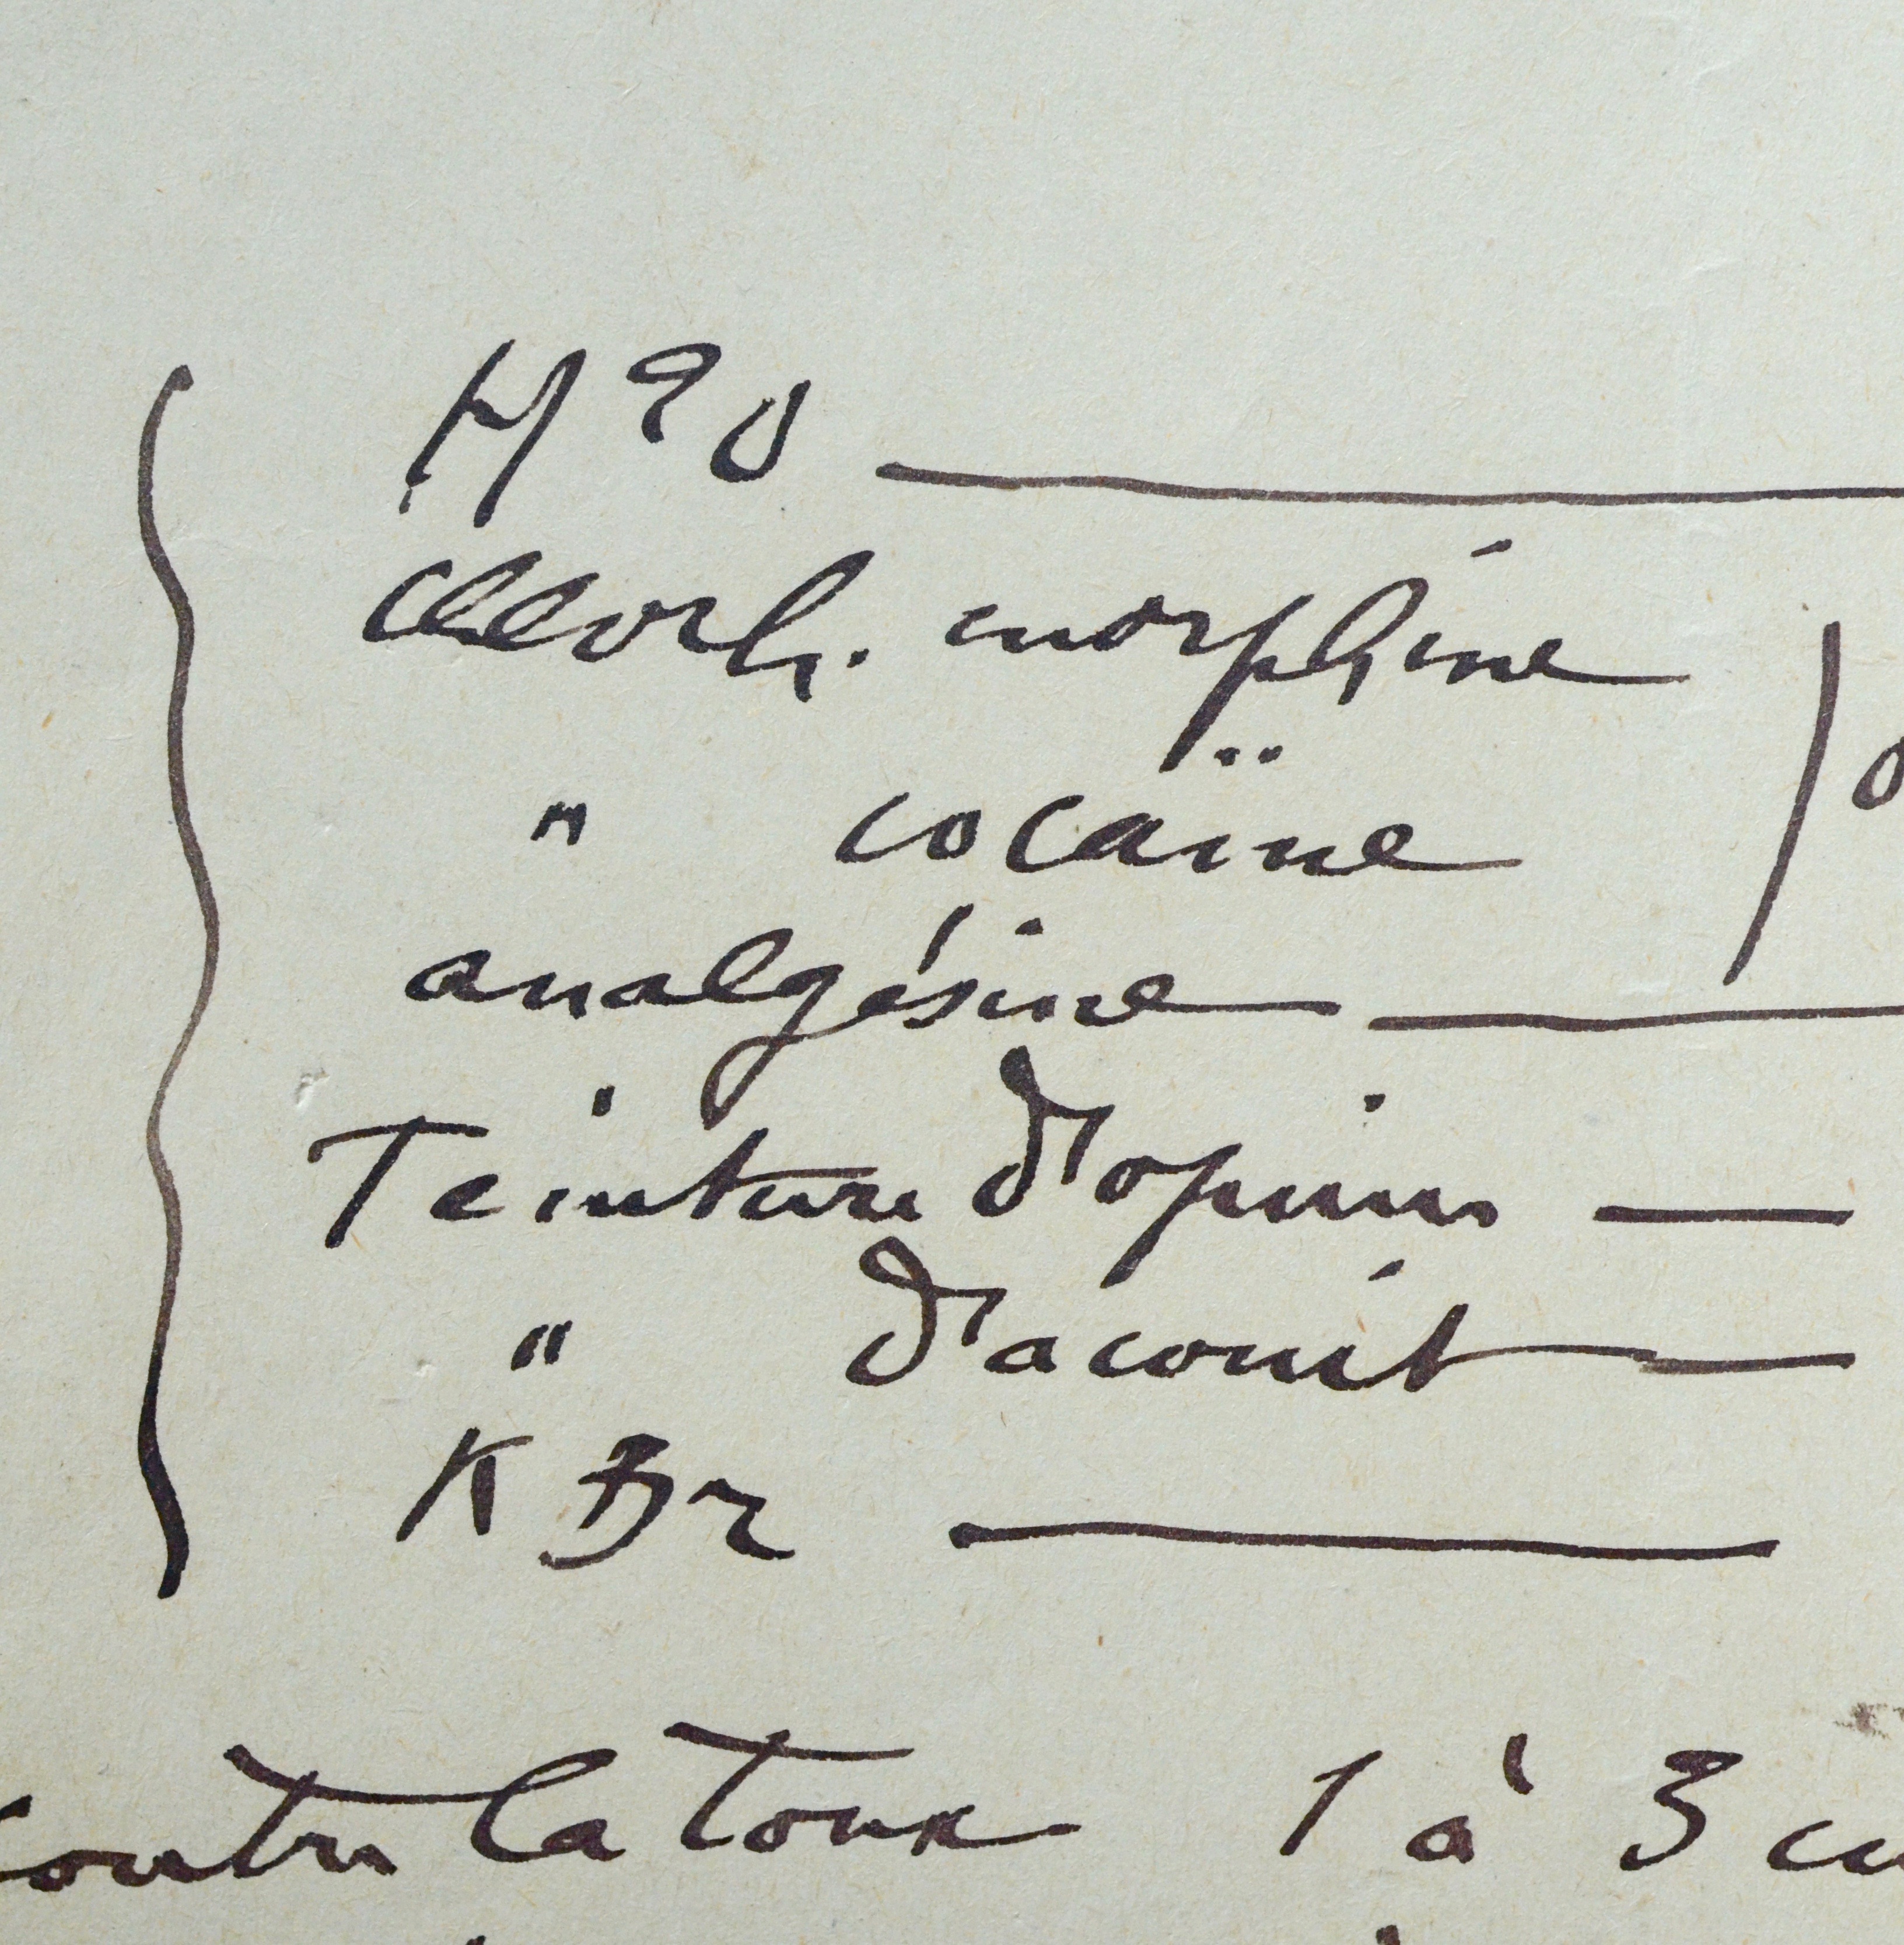 H²O
Chlorh. morphine
" cocaïne
analgésine
Teinture d'opium
" d'aconit
K Br
contre la toux 1 à 3